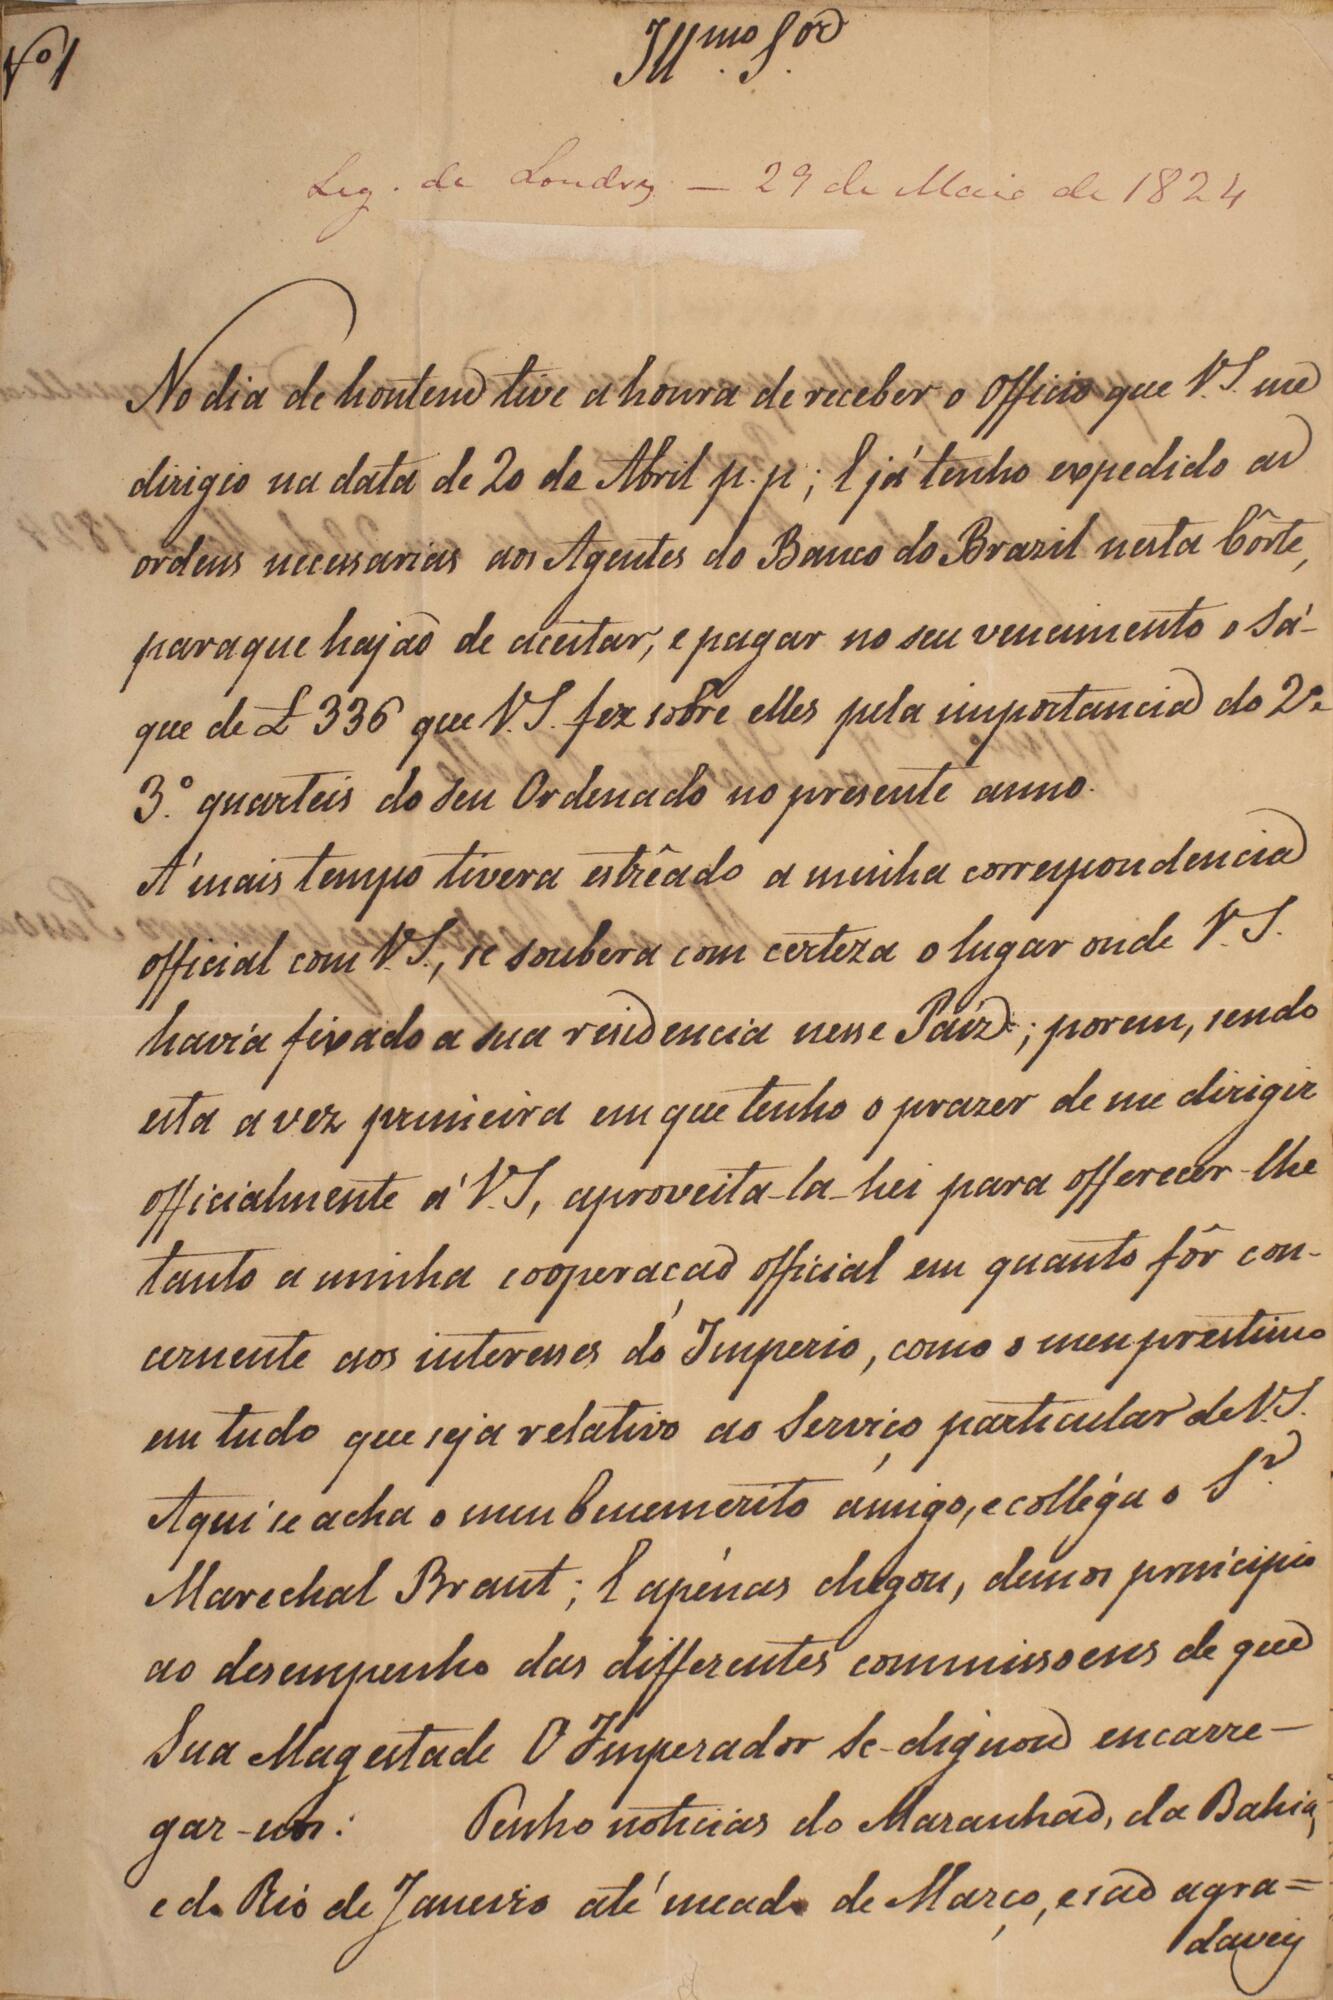 Nº 1
Illmo. Sor.
Leg. de Londres — 29 de Maio de 1824
No dia de hontem tive a honra de receber o Officio que V.S. me
dirigio na data de 20 de Abril p.p; E já tenho expedido as
ordens necessarias aos Agentes do Banco do Brazil nesta Côrte,
paraque hajaõ de aceitar, e pagar no seu vencimento o Sá-
que de £ 336 que V.S. fez sobre elles pela importancia do 2º e
3.º quarteis do seu Ordenado no presente anno.
A' mais tempo tivera estrêado a minha correspondencia
official com V.S., se soubera com certeza o lugar onde V.S.
havia fixado a sua residencia nesse Paíz; porem, sendo
esta a vez primeira em que tenho o prazer de me dirigir
officialmente á V.S, aproveita-la-hei para offerecer-lhe
tanto a minha cooperaçaõ official em quanto fôr con-
cernente aos interesses do Imperio, como o meu prestimo
em tudo que seja relativo ao Serviço particular de V.S.
Aqui se acha o meu benemerito ámigo, e colléga o Sr.
Marechal Brant; E apénas chegou, demos principio
ao desempenho das differentes commissoens de que
Sua Magestade O Imperador Se-dignou encarre-
gar-nos: Tenho noticias do Maranhaõ, da Bahia,
e do Rio de Janeiro até meado de Março, e saõ agra=
daveis